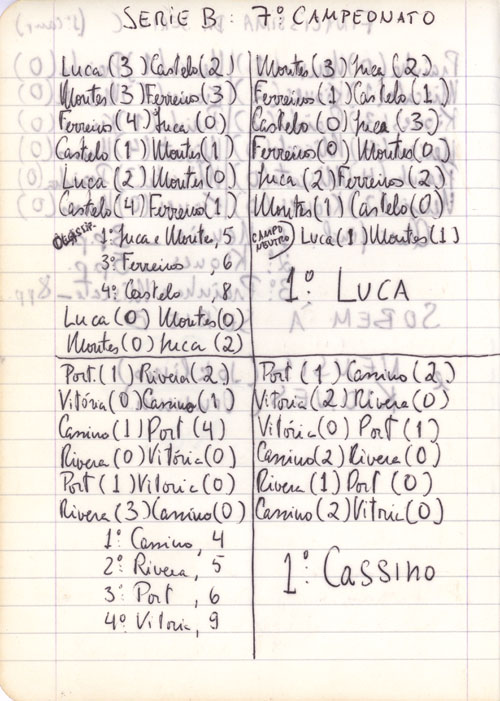 SERIE B: 7º CAMPEONATO
Luca (3) Castelo (2)
Montes (3) Ferreiros (3)
Ferreiros (4) Luca (0)
Castelo (1) Montes (1)
Luca (2) Montes (0)
Castelo (4) Ferreiros (1)
1º: Luca e Montes, 5
3º: Ferreiros, 6
4º: Castelo, 8
Luca (0) Montes (0)
Montes (0) Luca (2)
Montes (3) Luca (2)
Ferreiros (1) Castelo (1)
Castelo (0) Luca (3)
Ferreiros (0) Montes (0)
Luca (2) Ferreiros (2)
Montes (1) Castelo (0)
CAMPO NEUTRO Luca (1) Montes (1)
1º: LUCA
Port. (1) Rivera (2)
Vitória (0) Cassino (1)
Cassino (1) Port (4)
Rivera (0) Vitória (0)
Port (1) Vitoria (0)
Rivera (3) Cassino (0)
1º: Cassino, 4
2º: Rivera, 5
3º: Port, 6
4º: Vitoria, 9
Port (1) Cassino (2)
Vitoria (2) Rivera (0)
Vitória (0) Port (1)
Cassino (2) Rivera (0)
Rivera (1) Port (0)
Cassino (2) Vitoria (0)
1º: CASSINO